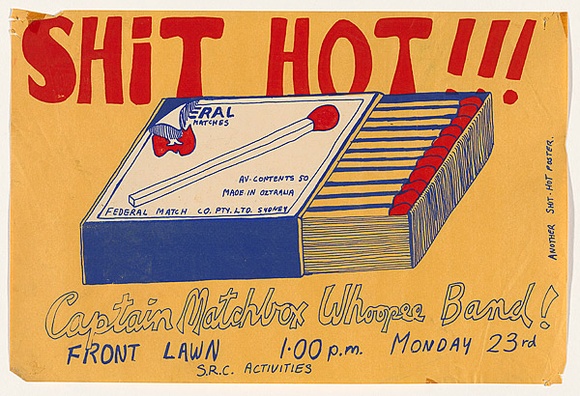 SHiT HOT!!!
ERAL
MATCHES
AV. CONTENTS 50
MADE IN OZTRALIA
FEDERAL MATCH CO. PTY. LTD. SYDNEY
ANOTHER SHIT-HOT POSTER.
Captain Matchbox Whoopee Band!
FRONT LAWN 1.00 p.m. MONDAY 23rd
S.R.C. ACTIVITIES